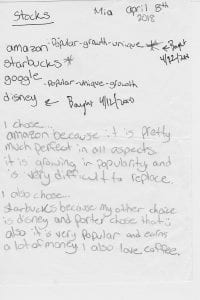 Stocks
Mia april 8th
2018
amazon - Popular - growth - unique * ← Bought
starbucks *
google - popular - unique - growth
disney ← Bought 4/12/
I chose...
amazon because it is pretty
much perfect in all aspects
it is growing in popularity and
is very difficult to replace.
I also chose...
starbucks because my other choice
is disney and porter chose that :(
also it is very popular and earns
a lot of money I also love coffee.